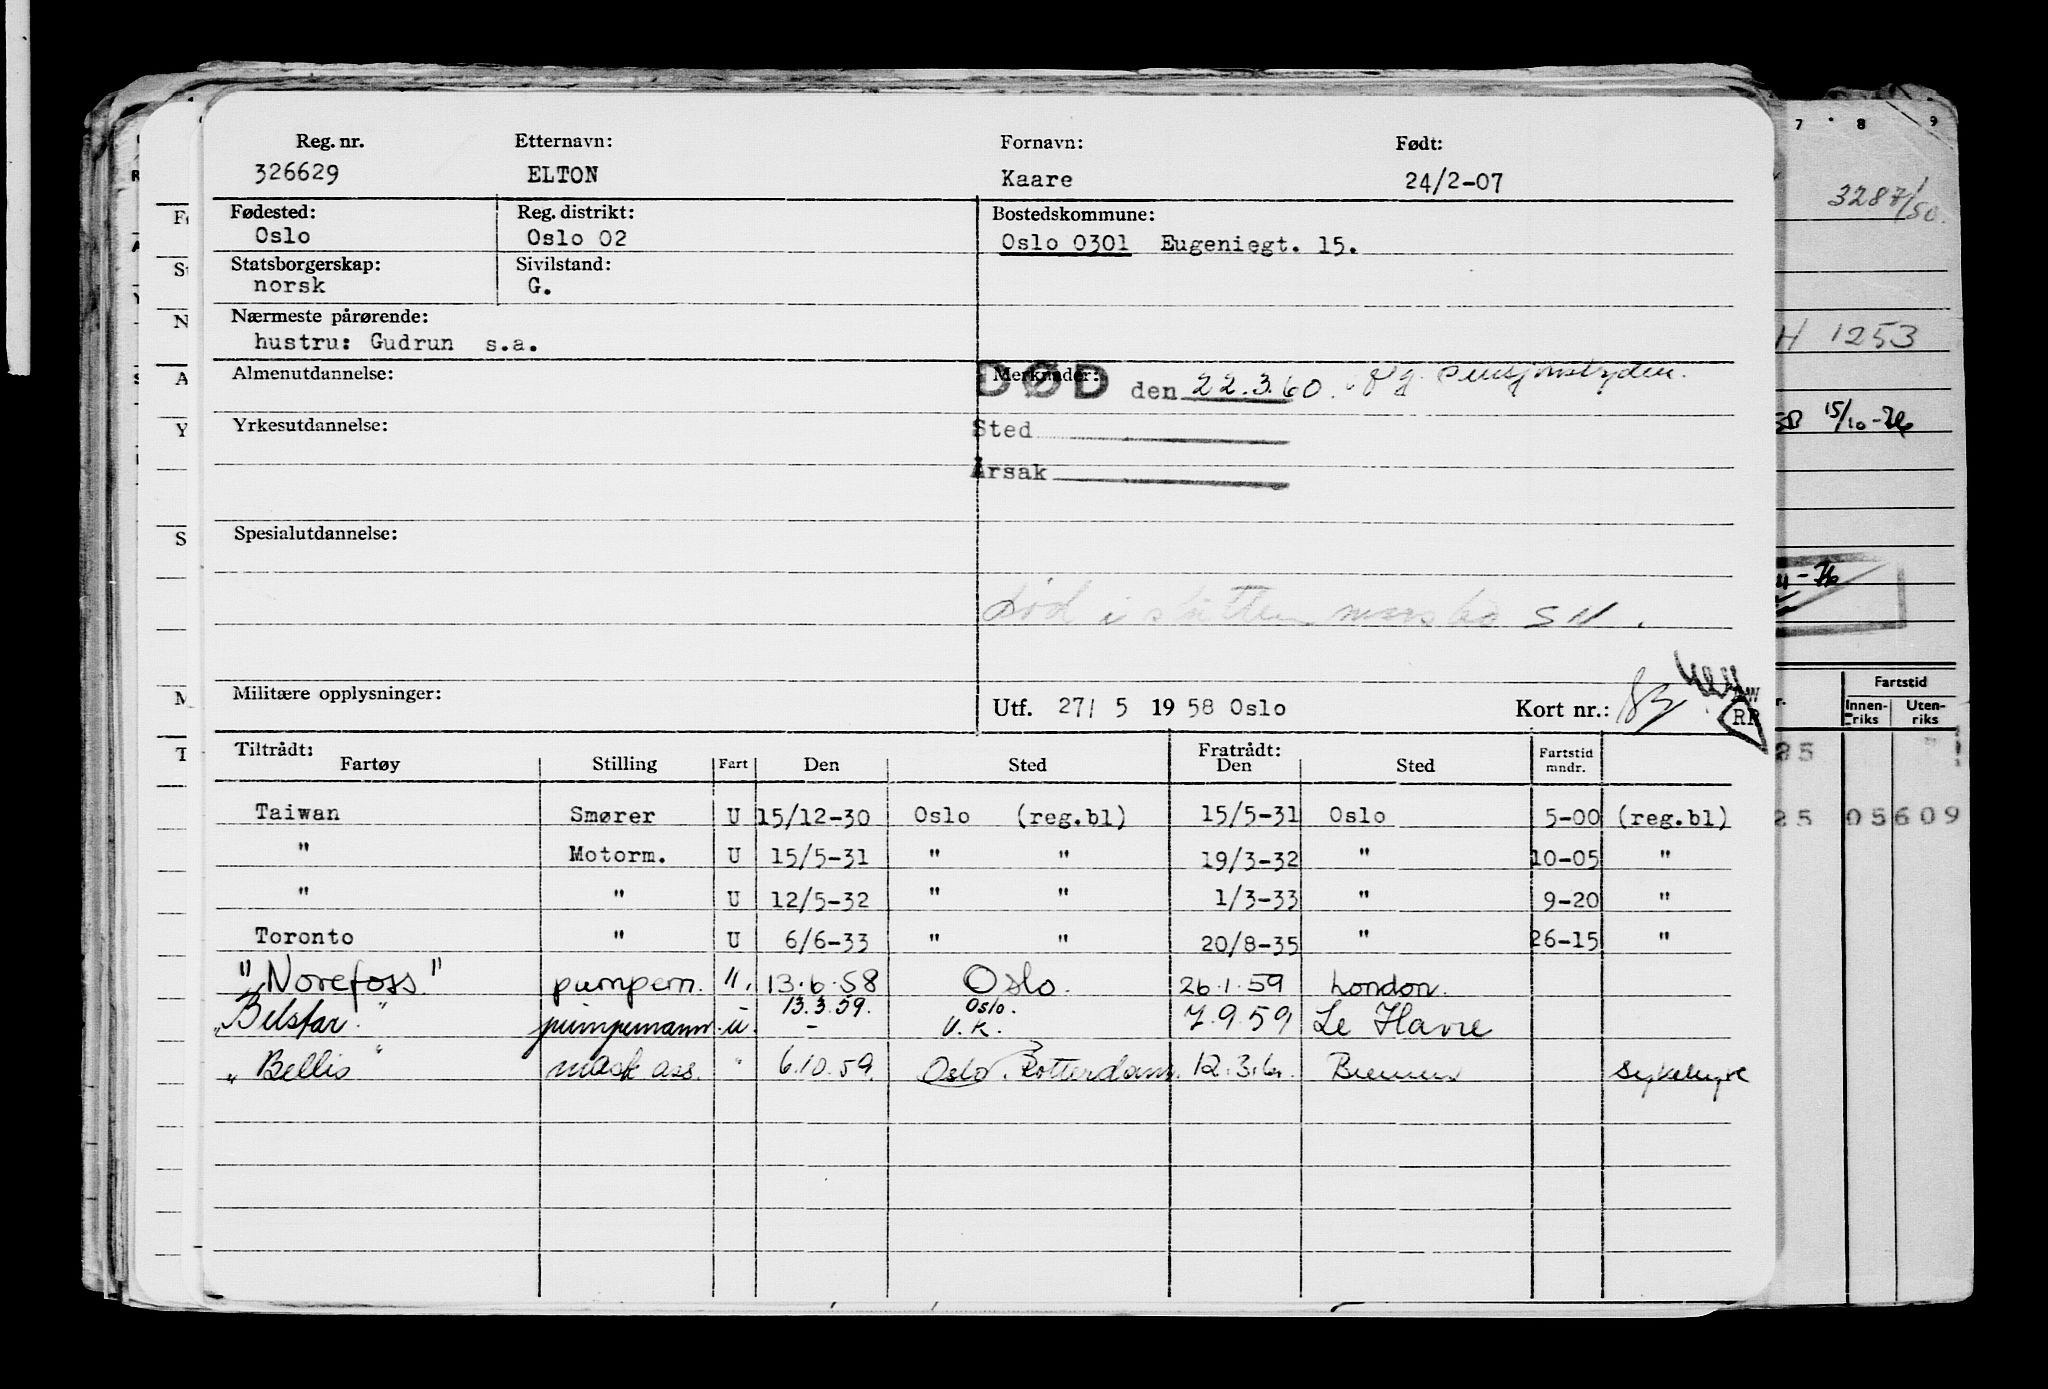 Reg. nr. Etternavn: Fornavn: Født:
326629 ELTON Kaare 24/2-07
Fødested: Reg. distrikt: Bostedskommune:
Oslo Oslo 02 Oslo 0301 Eugeniegt. 15.
Statsborgerskap: Sivilstand:
norsk G.
Nærmeste pårørende:
hustru: Gudrun s.a.
Almenutdannelse: Merknader:
DØD den 22.3.60.
Yrkesutdannelse: Sted
Årsak
Spesialutdannelse:
død i slutten mars 60
Militære opplysninger: Utf. 27/ 5 1958 Oslo Kort nr.:
RR
Tiltrådt: Fratrådt:
Fartøy Stilling Fart Den Sted Den Sted Fartstid mndr.
Taiwan Smører U 15/12-30 Oslo (reg.bl) 15/5-31 Oslo 5-00 (reg.bl)
" Motorm. U 15/5-31 " " 19/3-32 " 10-05 "
" " U 12/5-32 " " 1/3-33 " 9-20 "
Toronto " U 6/6-33 " " 20/8-35 " 26-15 "
"Norefoss" pumpem. ". 13.6.58 Oslo. 26.1.59 London.
13.3.59. Oslo.
"Belstar" pumpemann u. - U.k. 7.9.59 Le Havre
"Bellis" mask ass. " 6.10.59. Oslo. Rotterdam. 12.3.60. Bremen
7 8 9
3287/50.
H 1253
15/10-76
Fartstid
Innen-riks Uten-riks
85
25 05609